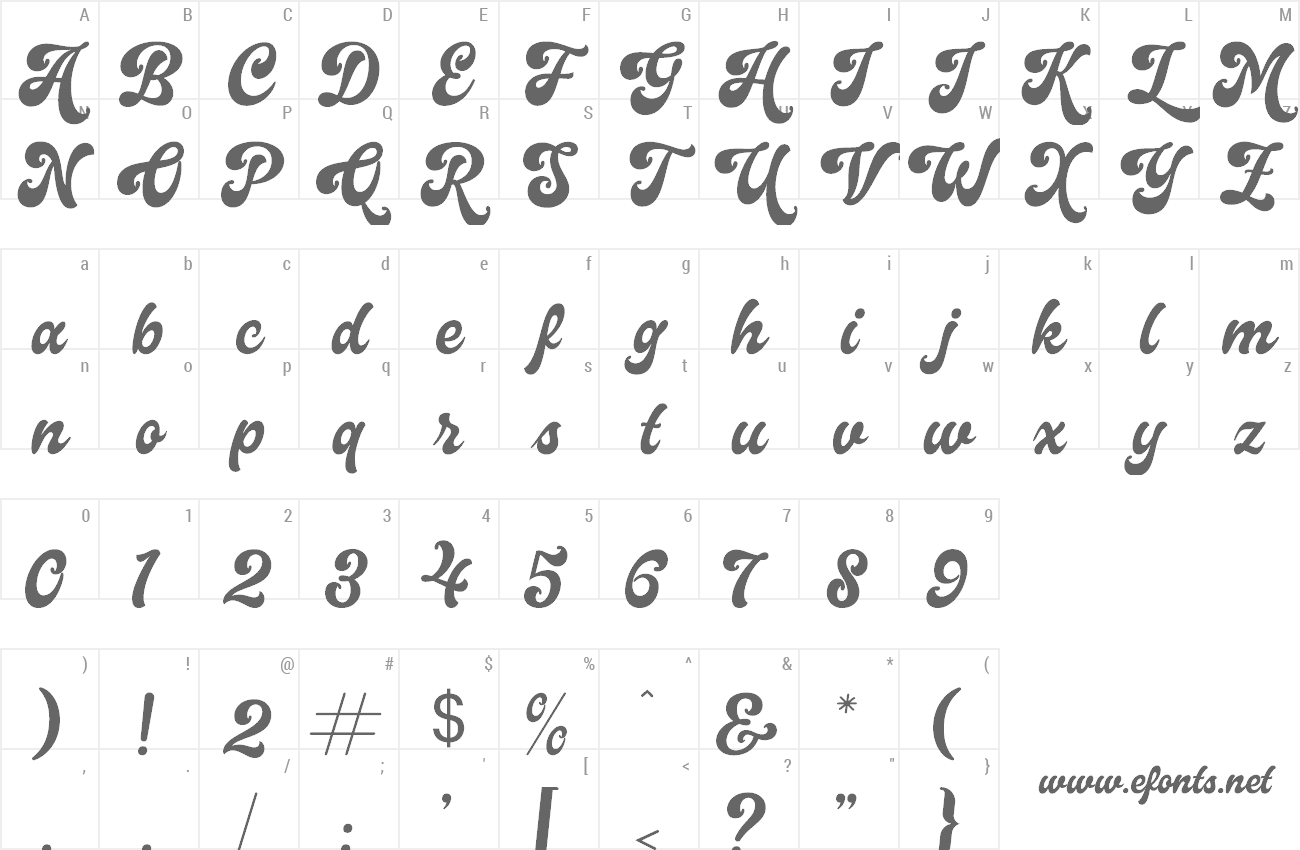 A B C D E F G H I J K L M
A B C D E F G H I J K L M
N O P Q R S T U V W X Y Z
N O P Q R S T U V W X Y Z
a b c d e f g h i j k l m
a b c d e f g h i j k l m
n o p q r s t u v w x y z
n o p q r s t u v w x y z
0 1 2 3 4 5 6 7 8 9
0 1 2 3 4 5 6 7 8 9
) ! @ # $ % ^ & * (
) ! 2 # $ % ^ & * (
, . / ; ' [ < ? " }
, . / ; ’ [ < ? ” }
www.efonts.net